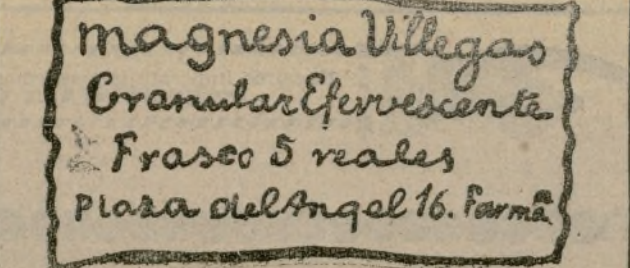 magnesia Villegas
Granular Efervescente
Frasco 5 reales
Plaza del Angel 16. Farmª